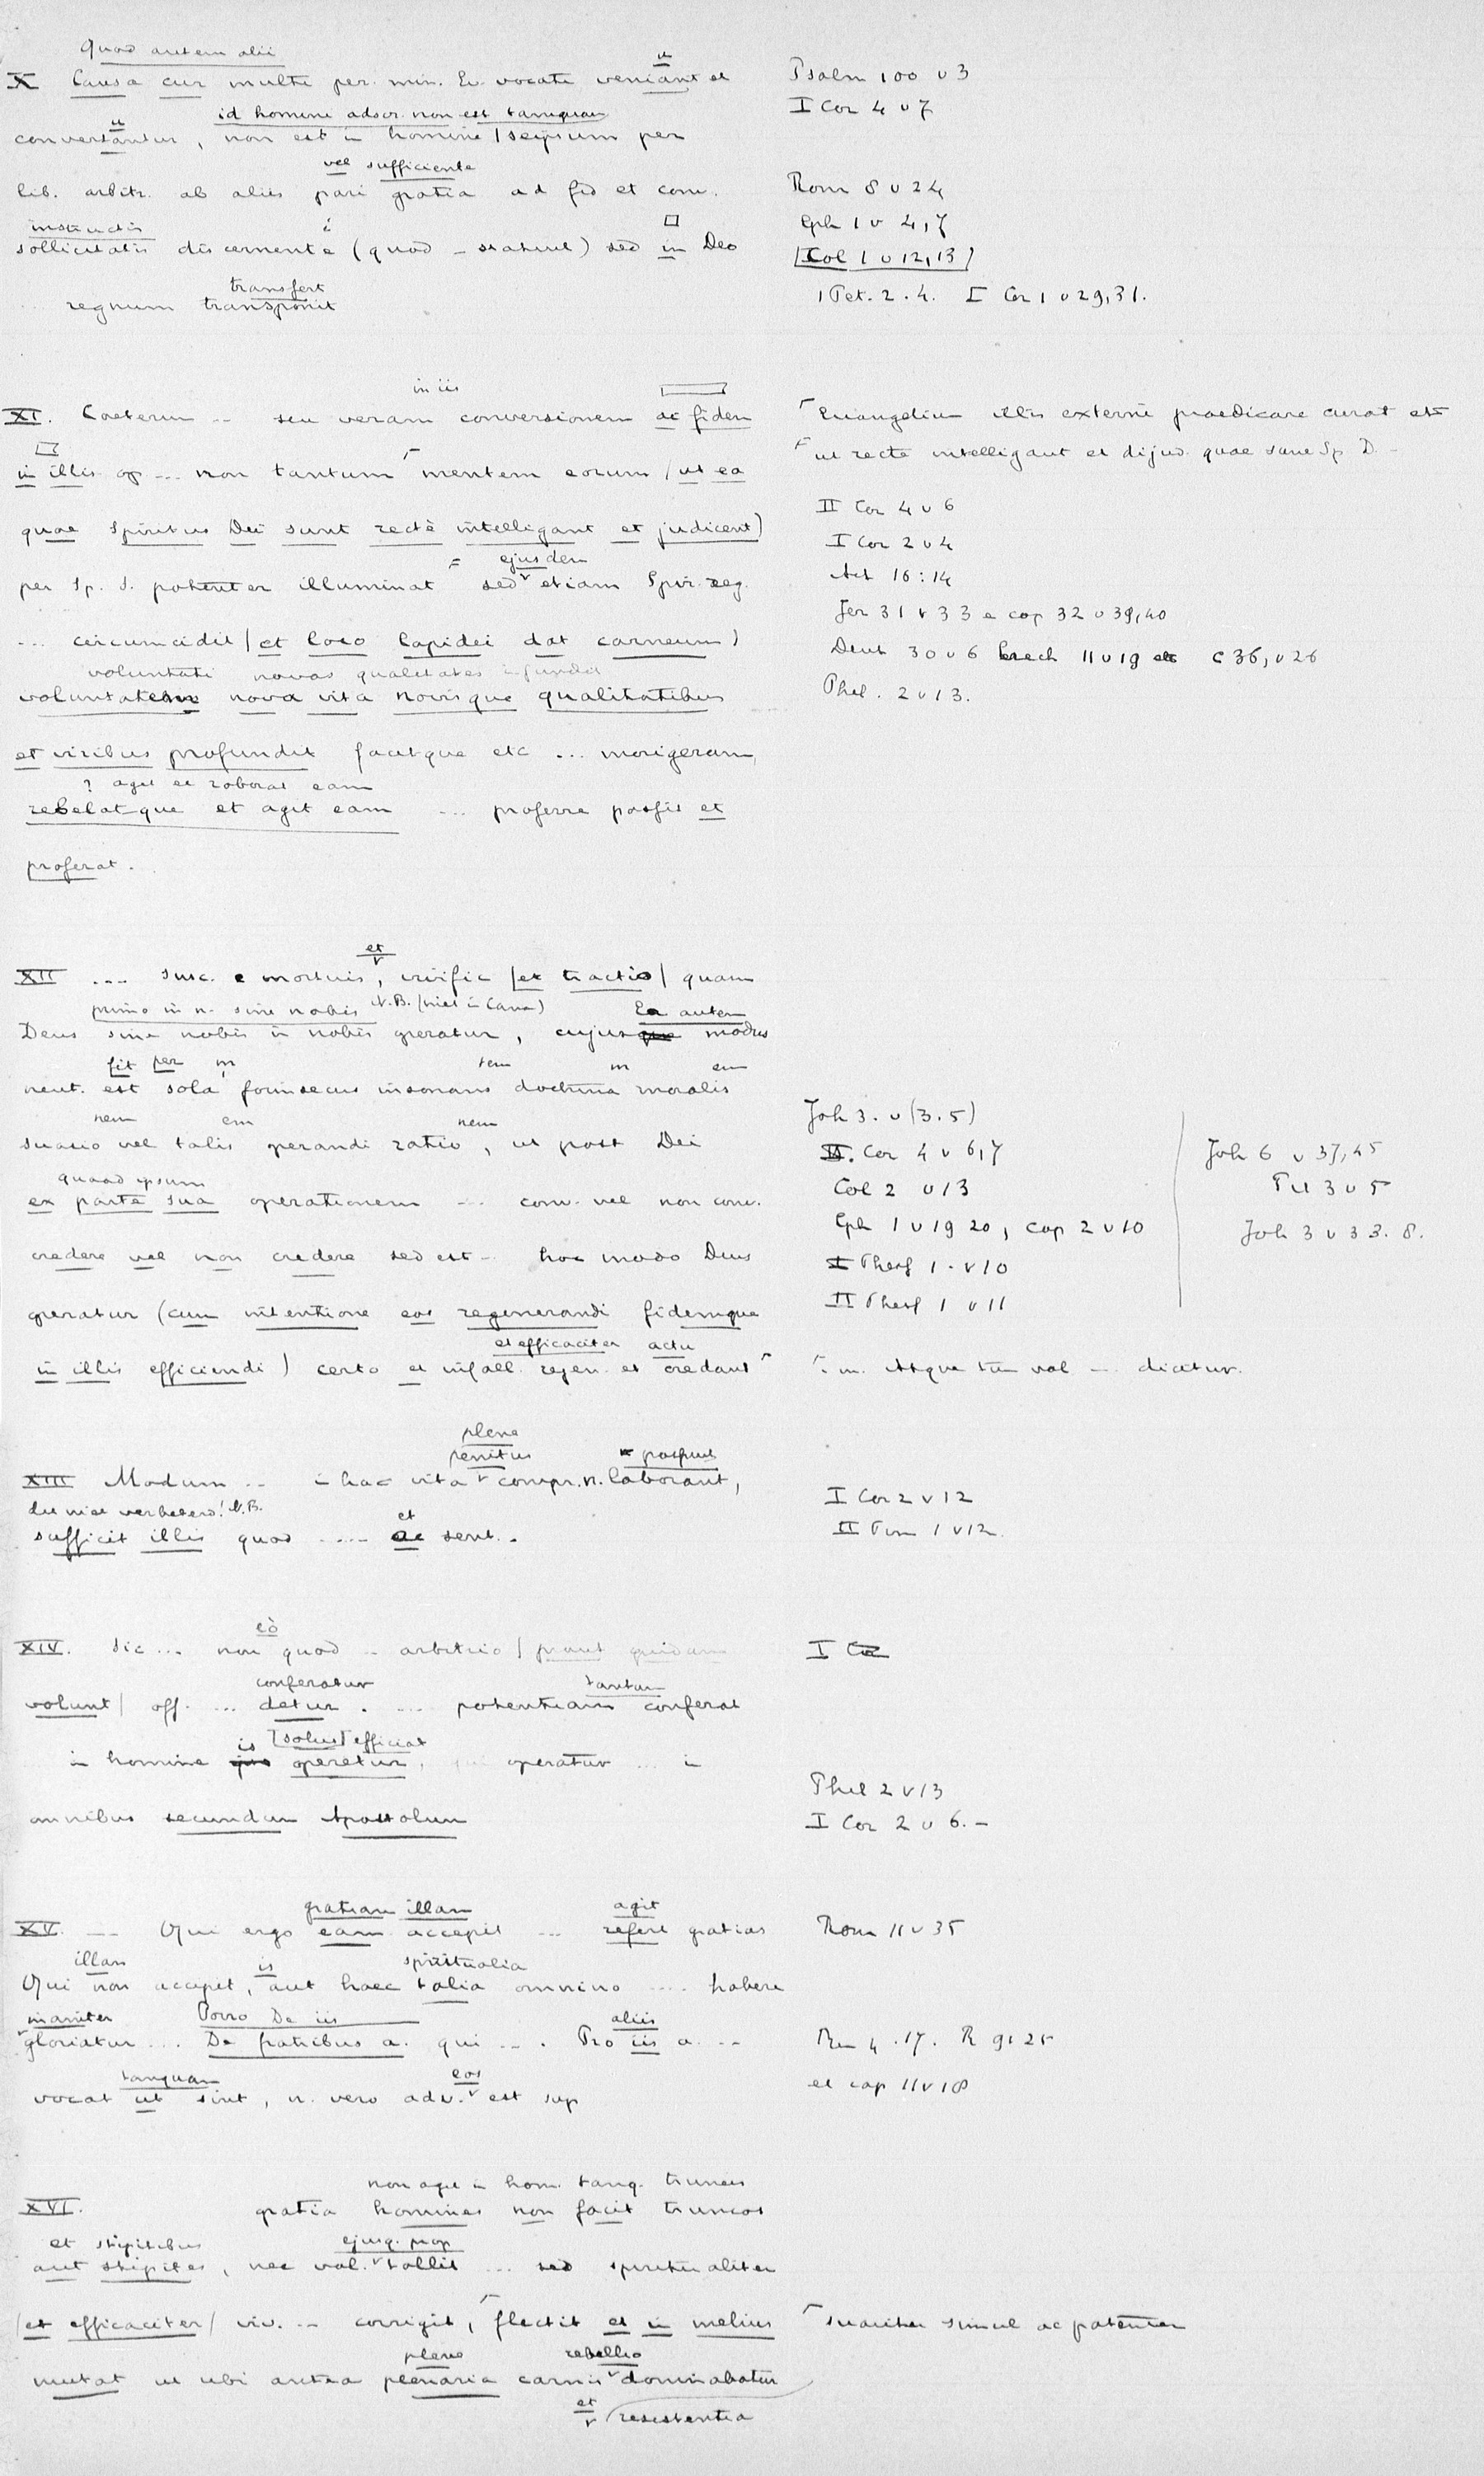 Quod autem alii
X Causa cur multi per min. Ev. vocati veniant et
u
id homini adscr. non est tamquam
u
convertantur, non est in homine / seipsum per
vel sufficiente
lib. arbitr. ab aliis pari gratia ad fid et conv.
instructis
i
sollicitatis discernente (quod - statuit) sed in Deo
transfert
regnum transponit
Psalm 100 v 3
I Cor 4 v 7
Rom 8 v 24
Eph 1 v 4,7
[Col 1 v 12,13]
1 Pet. 2.4. I Cor 1 v 29,31.
in iis
XI. Caeterum -- seu veram conversionem ac fidem
in illis op ... non tantum mentem eorum / ut ea
quae Spiritus Dei sunt rectè intelligant et judicent)
ejusdem
per Sp. S. potenter illuminat sed etiam Spir. reg.
... circumcidit / et loco lapidei dat carneum)
voluntati novas qualitates infundit
voluntatem nova vita novisque qualitatibus
et viribus profundit facitque etc ... morigeram,
? agit et roborat eam
rebelatque et agit eam ... proferre possit et
proferat.
Euangelium illis externe praedicare curat etc
ut recte intelligant et dijud. quae sunt Sp. D. -
II Cor 4 v 6
I Cor 2 v 4
Act 16:14
Jer 31 v 33 e cap 32 v 39,40
Deut 30 v 6 Ezech 11 v 19 et c 36, v 26
Phil. 2 v 13.
et
XII .... susc. e mortuis, vivific [et tractio] quam
primo in n. sine nobis N.B. (niet in Cann) Ea autem
Deus sine nobis in nobis operatur, cujusque modus
fit per m tem m em
neut. est sola forinsecus insonans doctrina moralis
nem em nem
suasio vel talis operandi ratio, ut post Dei
quoad ipsum
ex parte sua operationem ... conv. vel non conv.
credere vel non credere sed est - hoc modo Deus
operatur (cum intentione eos regenerandi fidemque
et efficaciter actu
in illis efficiendi) certo et infall. regen. et credant
Joh 3. v (3.5)
II. Cor 4 v 6,7
Col 2 v 13
Eph 1 v 19 20, cap 2 v 10
I Thess 1. v 10
II Thess 1 v 11
Joh 6 v 37,45
Tit 3 v 5
Joh 3 v 33. 8.
in. Atque tum vol --- dicitur.
plene
penitus possunt
XIII Modum .. in hac vita compr. n. laborant,
dit niet verbeterd! N.B. et
sufficit illis quod ..... ac sent..
I Cor 2 v 12
II Tim 1 v 12.
eò
XIV. Sic ... non quod .. arbitrio / prout quidam
conferatur tantum
volunt / off. ... detur . ... potentiam conferat
is [solus] efficiat
in homine qui operetur, qui operatur ... in
omnibus secundum Apostolum
I Cor
Phil 2 v 13
I Cor 2 v 6. -
gratiam illam agit
XV. --- Qui ergo eam accepit ... refert gratias
illam is spiritualia
Qui non accepit, aut haec talia omnino .... habere
inaniter Porro De iis aliis
gloriatur ... De fratribus a. qui ... Pro iis a. --
tanquam eos
vocat ut sint, n. vero adv. est sup
Rom 11 v 35
Rm 4. 17. R 9: 25
et cap 11 v 18
non agit in hom. tanq. truncis
XVI. gratia homines non facit truncos
et stipitibus ejusq. prop
aut stipites, nec vol. tollit ... sed spiritualiter
(et efficaciter) viv. -- corrigit, flectit et in melius
plene rebellio
mutat ut ubi antea plenaria carnis dominabatur
et
resistentia
suaviter simul ac potenter